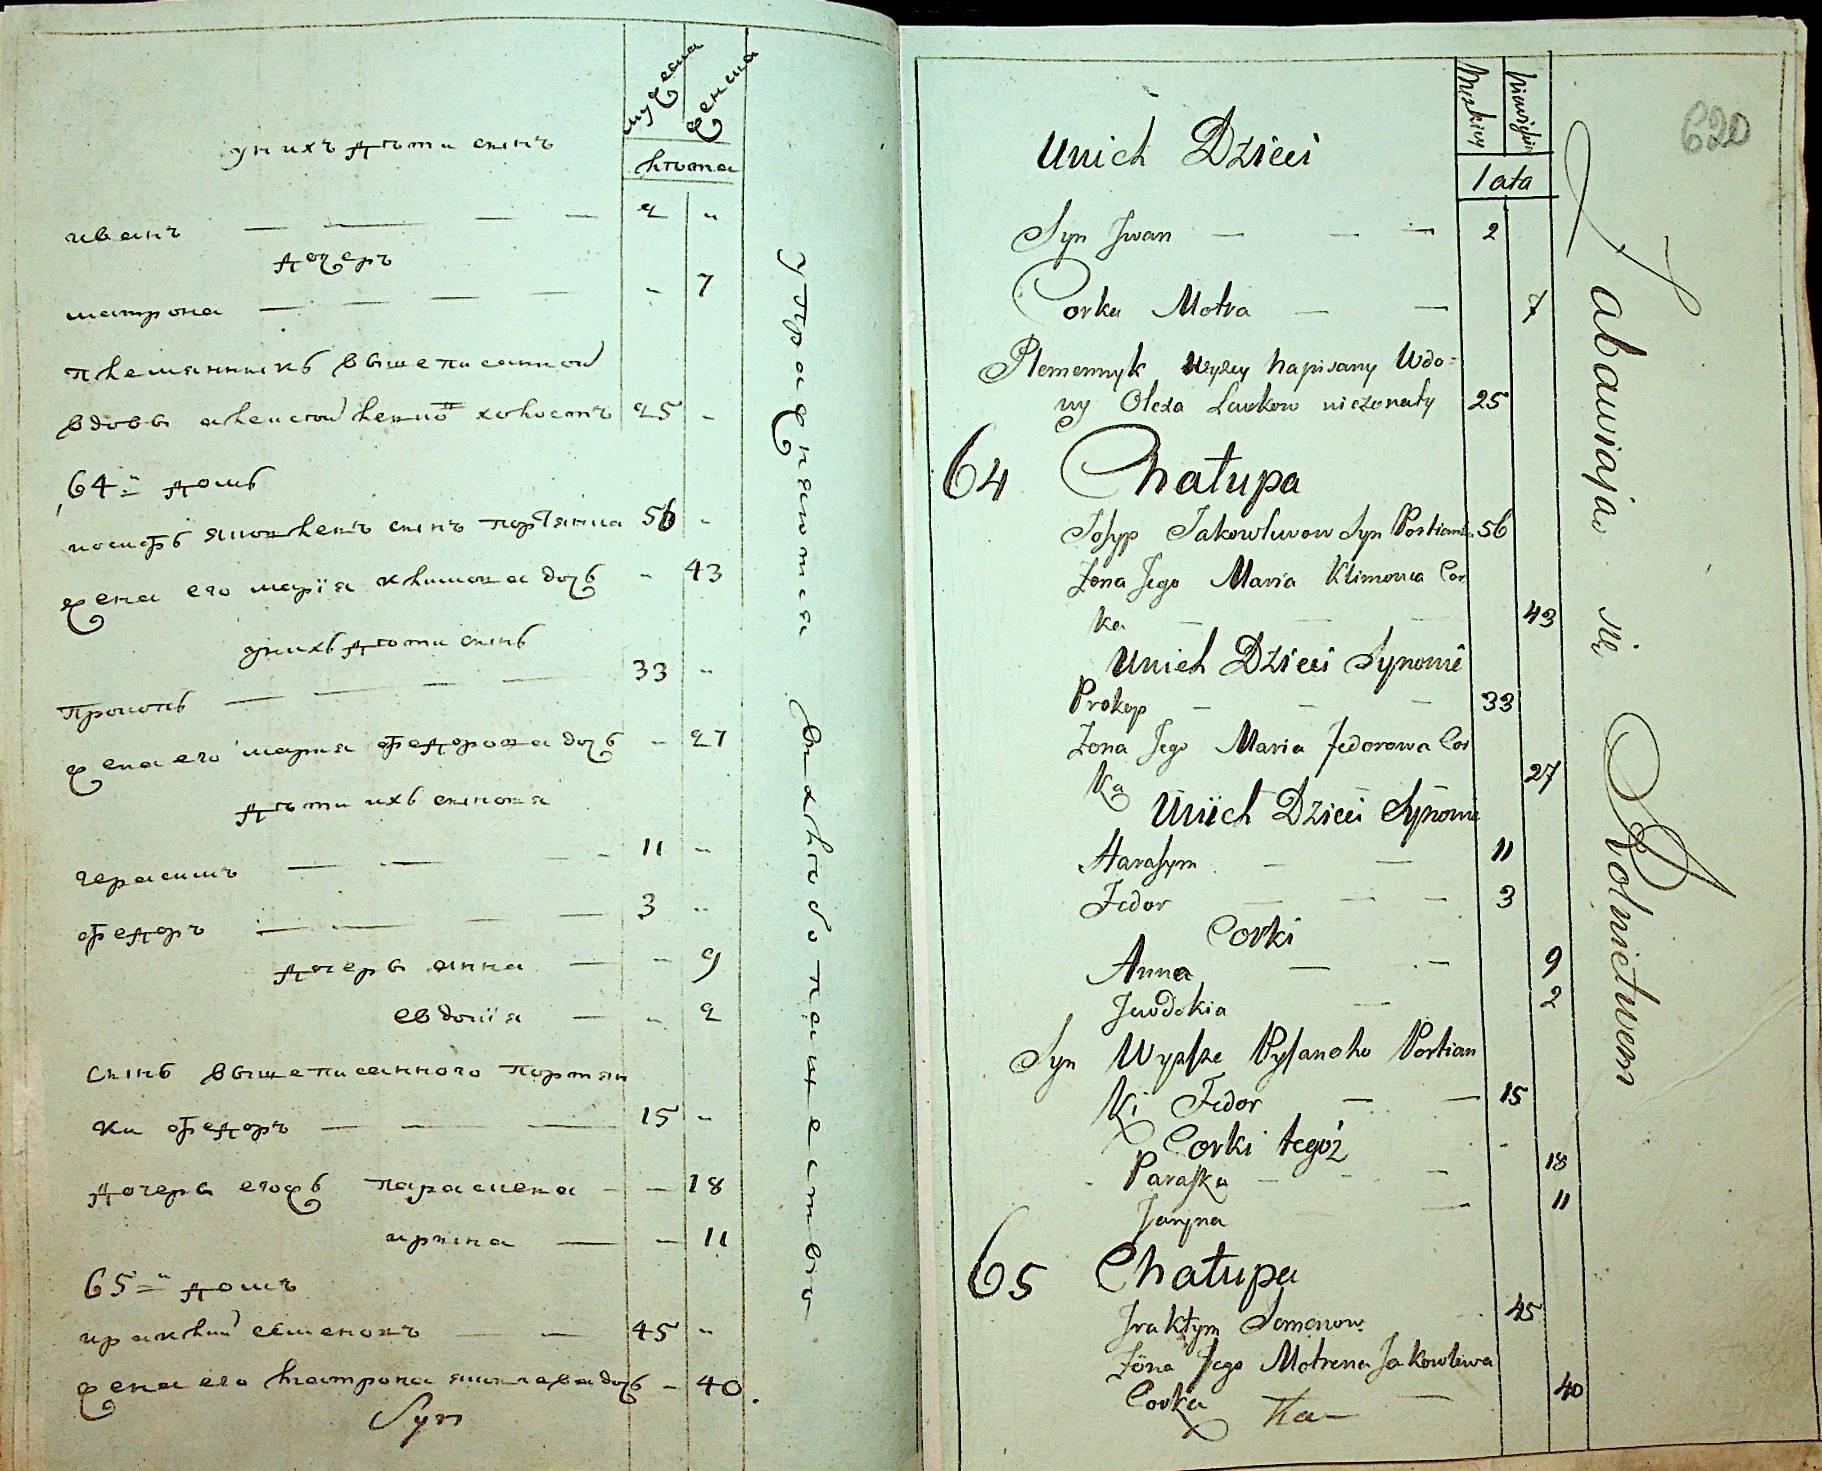 мужеска
женска
лѣта
у нихъ дѣти сынъ
иванъ — — — — 2 „
дочеръ
матрона — — — — - 7
племянникъ вышеписанной
вдовы алексей холостъ 25 -
64-й домъ
иосифъ яковлевъ сынъ портянка 56 -
жена его марія климова дочь - 43
у нихъ дѣти сынъ
33 „
прокопъ — — — —
жена его мария федорова дочь - 27
дѣти ихъ сыновя
герасимъ — — — — 11 „
федоръ — — — — 3 „
дочеръ анна — - 9
евдокія — „ 2
сынъ вышеписанного портян
ки федоръ — — — 15 „
дочеръ егожъ параскева — - 18
ирина — - 11
65-й домъ
ираклий семеновъ — — 45 „
жена его матрона яковлева дочь - 40.
Syn
упражняются
въ хлебопашествѣ
620
Męzkiey
Niewieściey
lata
Unich Dzieci
Syn Jwan — — — 2
Corka Motra — — 7
Plemennyk wyzey napisany Wdo=
wy Olexa Laukow nieżonaty 25
64 Chałupa
Josyp Jakowluwow Syn Portianka 56
Zona Jego Maria Klimowa Cor
ka — — — 43
Unich Dzieci Synowie
Prokop — — — 33
Zona Jego Maria Fedorowa Cor
ka 27
Unich Dzieci Synowie
Harasym — — 11
Fedor — — — 3
Corki
Anna — — 9
Jewdokia — 2
Syn Wyzsze Pysanoho Portian
Ki Fedor — — 15
Corki tegoż
Paraska — — — 18
Jaryna — — 11
65 Chałupa
Jraktym Semenow 45
Żona Jego Motrena Jakowlewa
Corka — 40
Ka—
Zabawiają się Rolnictwem